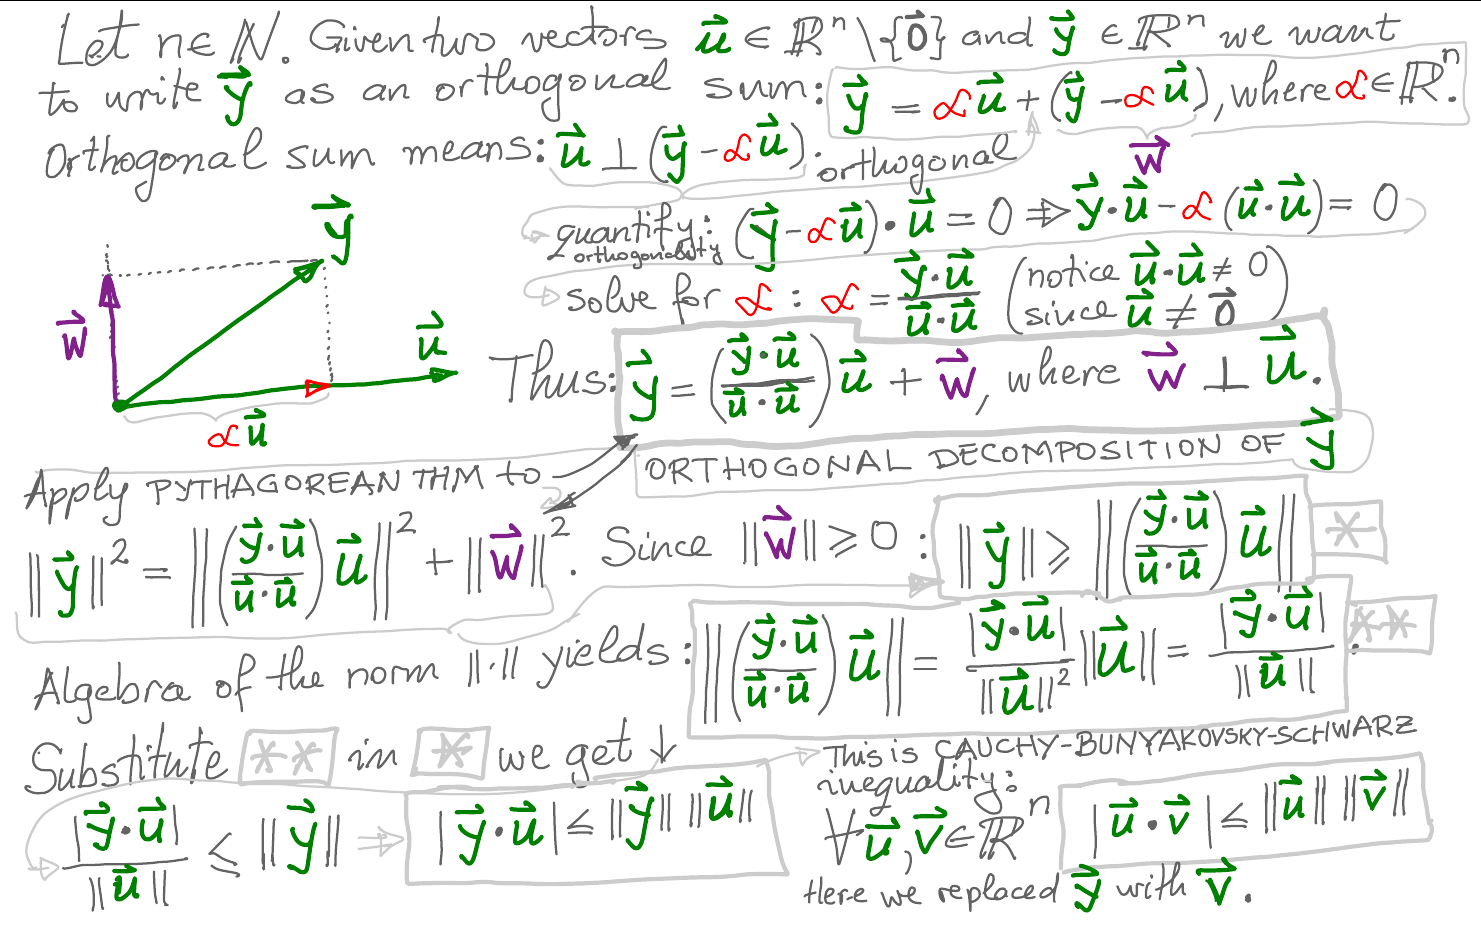 Let n∈ℕ. Given two vectors u⃗ ∈ ℝⁿ\{0⃗} and y⃗ ∈ ℝⁿ we want
to write y⃗ as an orthogonal sum: y⃗ = αu⃗ + (y⃗ - αu⃗), where α∈ℝⁿ.
w⃗
Orthogonal sum means: u⃗ ⊥ (y⃗ - αu⃗). orthogonal
quantify orthogonality: (y⃗ - αu⃗)·u⃗ = 0 ⇒ y⃗·u⃗ - α(u⃗·u⃗) = 0
solve for α : α = (y⃗·u⃗)/(u⃗·u⃗) (notice u⃗·u⃗ ≠ 0 since u⃗ ≠ 0⃗)
y⃗
w⃗
u⃗
αu⃗
Thus: y⃗ = ((y⃗·u⃗)/(u⃗·u⃗)) u⃗ + w⃗, where w⃗ ⊥ u⃗.
ORTHOGONAL DECOMPOSITION OF y⃗
Apply PYTHAGOREAN THM to
||y⃗||² = ||((y⃗·u⃗)/(u⃗·u⃗)) u⃗||² + ||w⃗||². Since ||w⃗|| ⩾ 0 : ||y⃗|| ⩾ ||((y⃗·u⃗)/(u⃗·u⃗)) u⃗|| *
Algebra of the norm ||·|| yields: ||((y⃗·u⃗)/(u⃗·u⃗)) u⃗|| = (|y⃗·u⃗|/||u⃗||²) ||u⃗|| = |y⃗·u⃗|/||u⃗|| . **
Substitute ** in * we get ↓
|y⃗·u⃗|/||u⃗|| ≤ ||y⃗|| ⇒ |y⃗·u⃗| ≤ ||y⃗|| ||u⃗||
This is CAUCHY-BUNYAKOVSKY-SCHWARZ
inequality:
∀u⃗,v⃗∈ℝⁿ |u⃗·v⃗| ≤ ||u⃗|| ||v⃗||
Here we replaced y⃗ with v⃗.